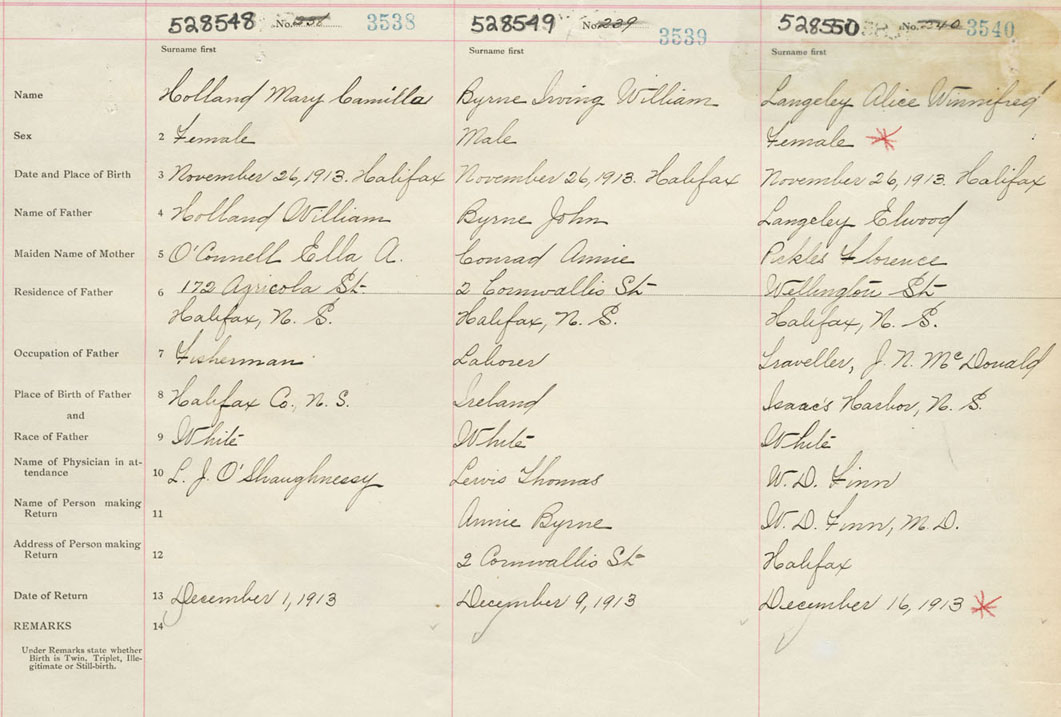 528548 No. 3538 528549 No. 239 3539 528550 No. 240 3540
Surname first Surname first Surname first
Name Holland Mary Camilla Byrne Irving William Langeley Alice Winnifred
Sex 2 Female Male Female
Date and Place of Birth 3 November 26, 1913. Halifax November 26, 1913. Halifax November 26, 1913. Halifax
Name of Father 4 Holland William Byrne John Langeley Elwood
Maiden Name of Mother 5 O'Connell Ella A. Conrad Annie Pickles Florence
Residence of Father 6 172 Agricola St 2 Cornwallis St Wellington St
Halifax, N. S. Halifax, N. S. Halifax, N. S.
Occupation of Father 7 Fisherman Laborer Traveller, J. N. McDonald
Place of Birth of Father 8 Halifax Co., N. S. Ireland Isaac's Harbor, N. S.
and
Race of Father 9 White White White
Name of Physician in at-
tendance 10 L. J. O'Shaughnessy Lewis Thomas W. D. Finn
Name of Person making
Return 11 Annie Byrne W. D. Finn, M. D.
Address of Person making
Return 12 2 Cornwallis St Halifax
Date of Return 13 December 1, 1913 December 9, 1913 December 16, 1913
REMARKS 14
Under Remarks state whether
Birth is Twin, Triplet, Ille-
gitimate or Still-birth.